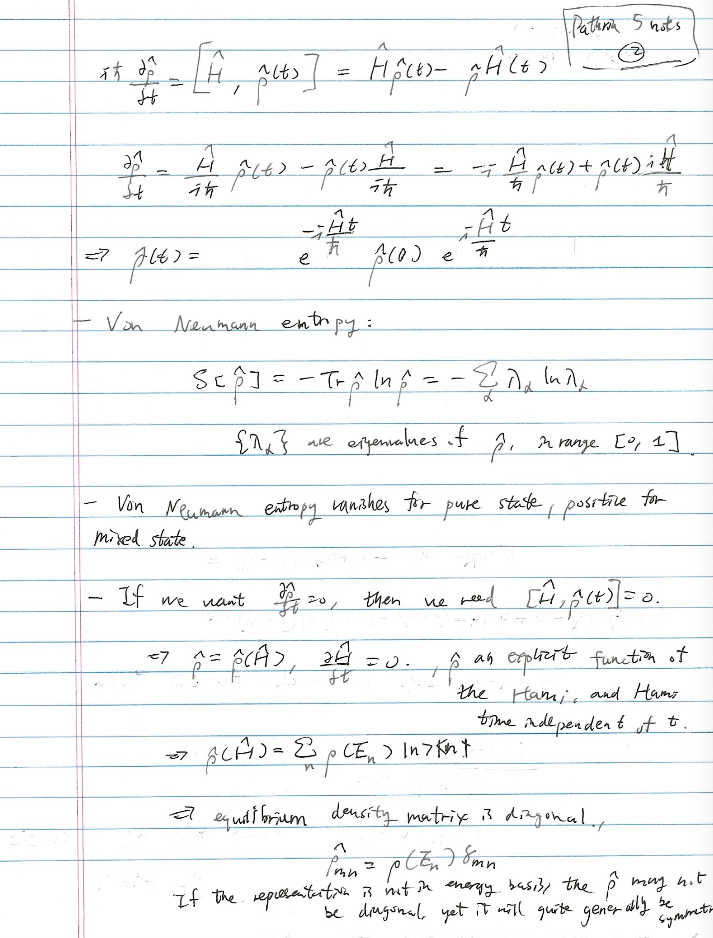 Pathria 5 notes
②
iħ ∂ρ̂/∂t = [Ĥ, ρ̂(t)] = Ĥρ̂(t) - ρ̂Ĥ(t)
∂ρ̂/∂t = Ĥ/iħ ρ̂(t) - ρ̂(t) Ĥ/iħ = -i Ĥ/ħ ρ̂(t) + ρ̂(t) iĤ/ħ
⇒ ρ̂(t) = e^(-iĤt/ħ) ρ̂(0) e^(iĤt/ħ)
- Von Neumann entropy:
S[ρ̂] = - Tr ρ̂ ln ρ̂ = - Σ_α λ_α ln λ_α
{λ_α} are eigenvalues of ρ̂, in range [0, 1].
- Von Neumann entropy vanishes for pure state, positive for
mixed state.
- If we want ∂ρ̂/∂t = 0, then we need [Ĥ, ρ̂(t)] = 0.
⇒ ρ̂ = ρ̂(Ĥ), ∂Ĥ/∂t = 0. , ρ̂ an explicit function of
the Hami, and Hami
time independent of t.
⇒ ρ̂(Ĥ) = Σ_n ρ(E_n) |n><n|
⇒ equilibrium density matrix is diagonal.,
ρ̂_mn = ρ(E_n) δ_mn
If the representation is not in energy basis, the ρ̂ may not
be diagonal, yet it will quite generally be
symmetric